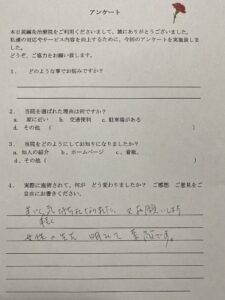 アンケート
本日満鍼灸治療院をご利用くださいまして、誠にありがとうございました。
私達の対応やサービス内容を向上するために、今回のアンケートを実施致しました。
どうぞ、ご協力をお願い致します。
1. どのような事でお悩みですか?
2. 当院を選ばれた理由は何ですか?
a. 家に近い b. 交通便利 c. 駐車場がある
d. その他 (
3. 当院をどのようにしてお知りになりましたか?
a. 知人の紹介 b、ホームページ c、看板、
d、その他 (
4. 実際に施術されて、何が どう変わりましたか? ご感想 ご意見をご
自由にお書きください。
軽く
女性の先生 明るくて 素敵です。